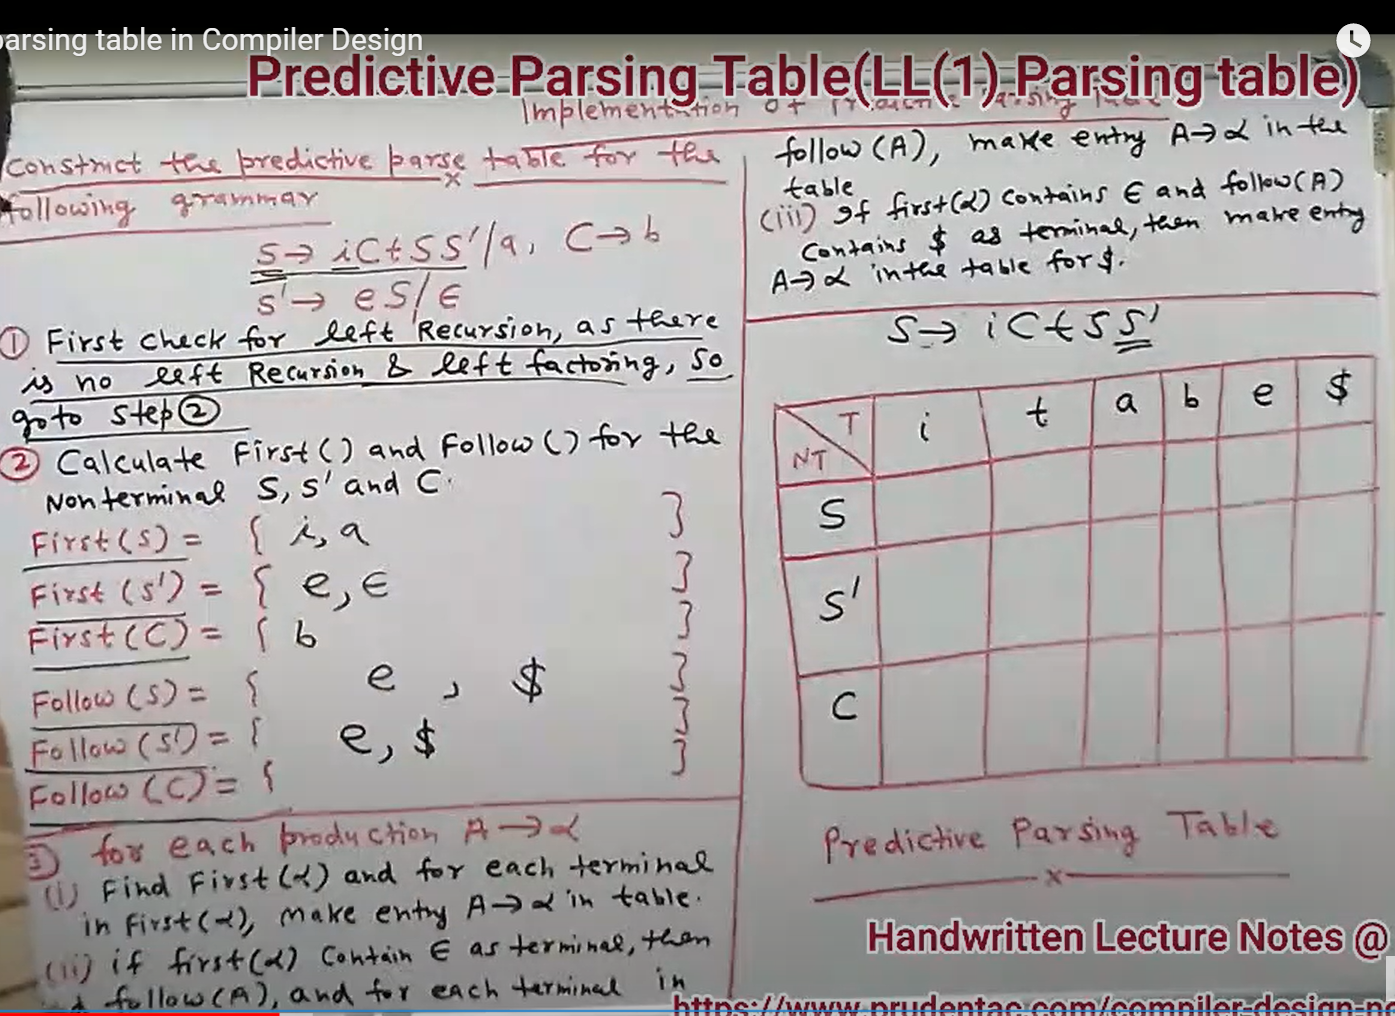 parsing table in Compiler Design
Predictive Parsing Table(LL(1) Parsing table)
Implementation of Predictive Parsing Table
construct the predictive parse table for the
following grammar
S → iCtSS'/a, C → b
S' → eS/ϵ
① First check for left Recursion, as there
is no left Recursion & left factoring, so
goto step ②
② Calculate First() and Follow() for the
Nonterminal S, S' and C.
First(S) = { i, a }
First(S') = { e, ϵ }
First(C) = { b }
Follow(S) = { e , $ }
Follow(S') = { e, $ }
Follow(C) = {
③ for each production A → α
(i) Find First(α) and for each terminal
in first(α), make entry A → α in table.
(ii) if first(α) Contain ϵ as terminal, then
follow(A), and for each terminal in
follow(A), make entry A → α in the
table
(iii) If first(α) contains ϵ and follow(A)
contains $ as terminal, then make entry
A → α in the table for $.
S → iCtSS'
T i t a b e $
NT
S
S'
C
Predictive Parsing Table
x
Handwritten Lecture Notes @
https://www.prudentac.com/compiler-design-n